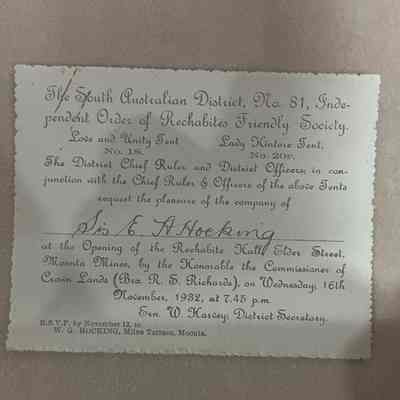 The South Australian District, No. 81, Inde-
pendent Order of Rechabites Friendly Society.
Love and Unity Tent Lady Kintore Tent,
No. 18. No. 20F.
The District Chief Ruler and District Officers, in con-
junction with the Chief Ruler & Officers of the above Tents
request the pleasure of the company of
Sis E. A Hocking
at the Opening of the Rechabite Hall, Elder Street,
Moonta Mines, by the Honorable the Commissioner of
Crown Lands (Bro. R. S. Richards), on Wednesday, 16th
November, 1932, at 7.45 p.m.
Ern. W. Harvey, District Secretary.
R.S.V.P. by November 12, to
W. G. HOCKING, Milne Terrace, Moonta.